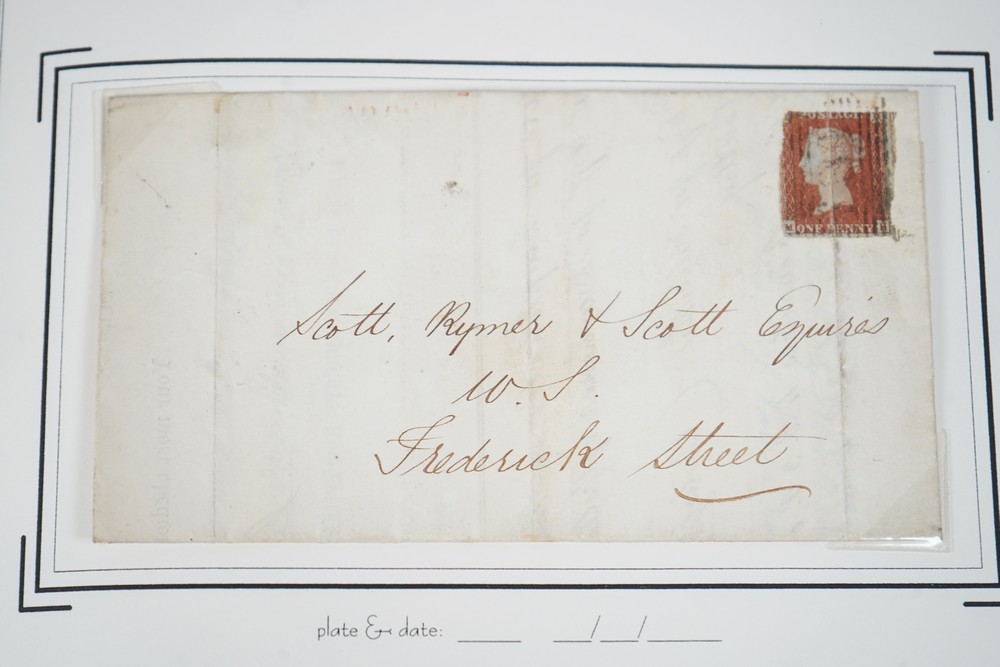 POSTAGE
ONE PENNY
Scott, Rymer & Scott Esquires
W. S.
Frederick Street
plate & date: ____ __/__/____